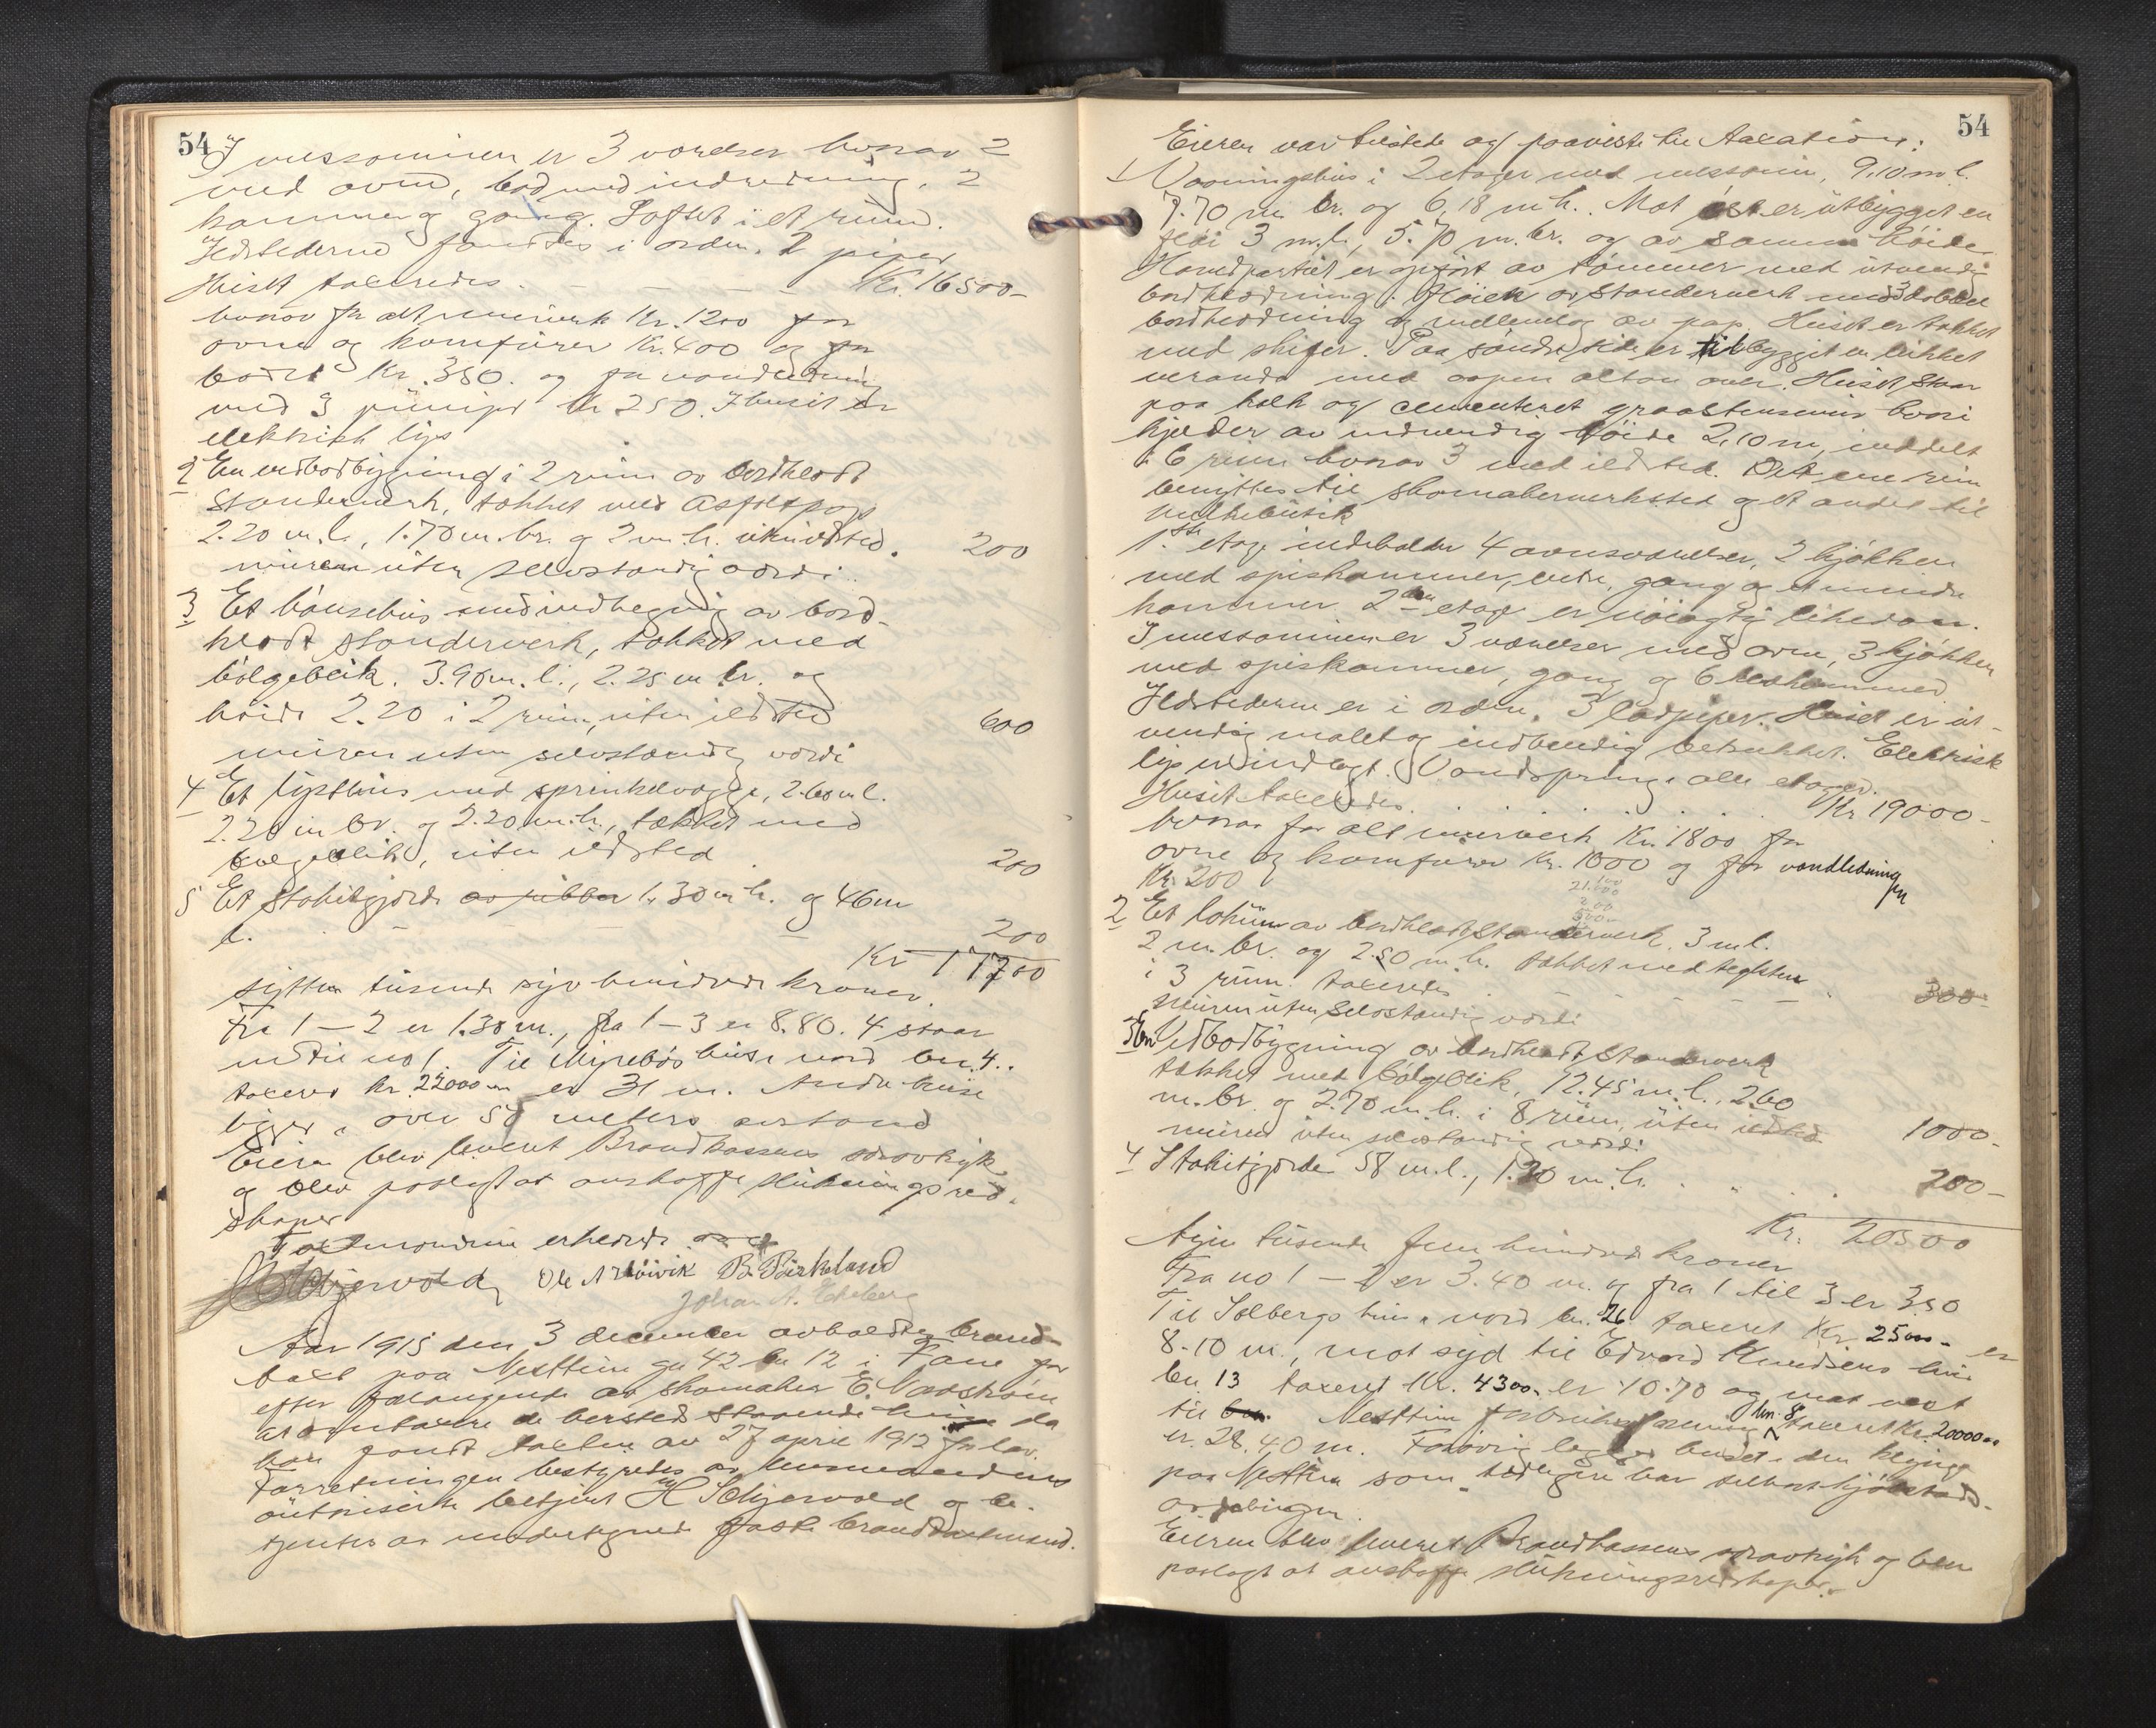 54
I messaninen er 3 værelser hvorav 2
med ovne, bad med indredning, 2
kammer og gang. Loftet i et rum.
Ildstederne fandtes i orden. 2 piper
Huset taxeredes - - - - Kr. 16500-
hvorav for alt murverk Kr. 1200 for
ovne og komfurer Kr. 400 og for
badet Kr. 350. og for vandledning
med 3 Kr 250. I huset er
elektrisk lys
2 En vedbodbygning i 2 rum av bordklædt
standerverk, tækket med asfaltpap
2.20 m.l., 1.70 m. br. og 2 m.h. uten ildsted. 200
muren uten selvstændig værdi.
3 Et hönsehus med indhegnig av bord-
klædt standerverk, tækket med
bölgeblik. 3.90 m.l., 2.25 m br. og
höide 2.20 i 2 rum, uten ildsted 600
muren uten selvstændig værdi
4 Et lysthus med sprinkelvægge, 2.60 m l.
2.20 m br. og 2.20 m.h., tækket med
bølgeblik, uten ildsted 200
5 Et Stakitgjærde av ribber 1.30 m h. og 46 m
l. - - - 200
Kr 17700
sytten tusende syv hundrede kroner.
Fra 1-2 er 1.30 m., fra 1-3 er 8.80. 4 staar
ind til no 1. Til Myrebös hus i nord bn. 4..
taxeret kr. 22000 er 31 m. Andre huse
ligger i over 50 meters avstand
Eieren blev leveret Brandkassens særtryk
og blev paalagt at anskaffe slukningsred-
skaper
Taxtmændene erhedrede
H Schjervold Ole A Røivik B. Birkeland
Johan A.
Aar 1915 den 3 december avholdtes brand-
taxt paa Nesttun gn 42 bn 12 i Fane
efter forlangende av skomaker E. Nordström
at omtaxere de hersted staaende huse da
han fandt taxten av 27 april 1912 for lav.
Forretningen bestyredes av lensmandens
autoriserte betjent H Schjervold og be-
tjentes av undertegnede faste brandtaxtmænd.
54
Eieren var tilstede og paaviste til Taxation:
1 Vaaningshus i 2 etager med messanin, 9.10 m l.
7.70 m br. og 6,18 m h. Mot öst er utbygget en
flöi 3 m.l., 5.70 m. br. og av samme höide
Hovedpartiet er opfört av tömmer med utvendig
bordklædning. Flöien av standerverk med 3 dobbel
bordklædning og mellemlag av pap. Huset er tækket
med skifer. Paa söndre side er tilbygget en lukket
veranda med aapen altan over. Huset staar
paa kalk og cementeret graastensmur hvori
kjelder av indvendig höide 2,10 m, inddelt
i 6 rum hvorav 3 med ildsted. Det ene rum
benyttes til skomakerverksted og et andet til
melkebutik
1ste etage indeholder 4 ovnsværelser, 2 kjökken
med spiskammer, entre, gang og et mindre
kammer. 2den etage er nöiagtig likedan.
I messaninen er 3 værelser med ovne, 3 kjökken
med spiskammer, gang og 6
Ildstederne er i orden, 3 lodpiper. Huset er ut-
vendig malet og indvendig betrukket. Elektrisk
lys er indlagt. Vandspring i alle etager.
Huset taxeredes . . . . . . Kr 19000-
hvorav for alt murverk Kr. 1800 for
ovne og komfurer Kr. 1000 og for vandledning
Kr. 200
2 Et lokum av bordklædt Standerverk. 3 m l.
2 m. br. og 2.50 m.h. tækket med teglsten
i 3 rum. taxeredes - - - - 300-
Muren uten selvstændig værdi
3 En Vedbodbygning av bordklædt Standerverk
tækket med bölgeblik, 12.45 m.l., 2.60
m. br. og 2.70 m.h. i 8 rum, uten ildsted 1000-
muren uten selvstændig værdi
4 Stakitgjærde 58 m.l., 1.20 m.h. . . . 200-
Kr. 20500
tyve tusende fem hundrede kroner
Fra no 1-2 er 3.40 m. og fra 1 til 3 er 3.50
Til Solbergs hus i nord bn. 26 taxeret Kr. 25000- er
8.10 m., mot syd til Edvard Knudsens hus
bn 13 taxeret Kr. 4300.- er 10.70 og mot vest
til Nesttun forbruksforening bn. 8 taxeret Kr. 20000
er 28.40 m. Forövrig ligger huset i den klynge
paa Nesttun som tidligere har
Eieren blev leveret Brandkassens særtryk og blev
paalagt at anskaffe slukningsredskaper.-